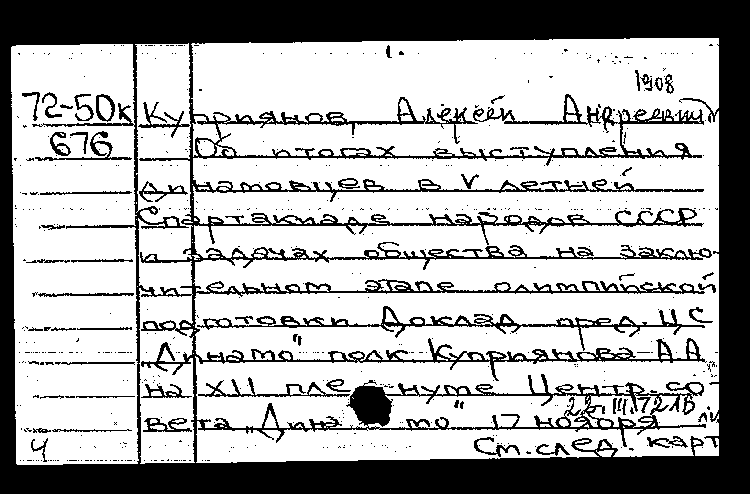 1.
1908
72-50к Куприянов, Алексей Андреевич
676 Об итогах выступления
динамовцев в V летней
Спартакиаде народов СССР
и задачах общества на заклю-
чительном этапе олимпийской
подготовки Доклад пред. ЦС
„Динамо" полк Куприянова А А
на XII пленуме Центр. со-
вета „Динамо" 17 ноября
4 См. след. карт